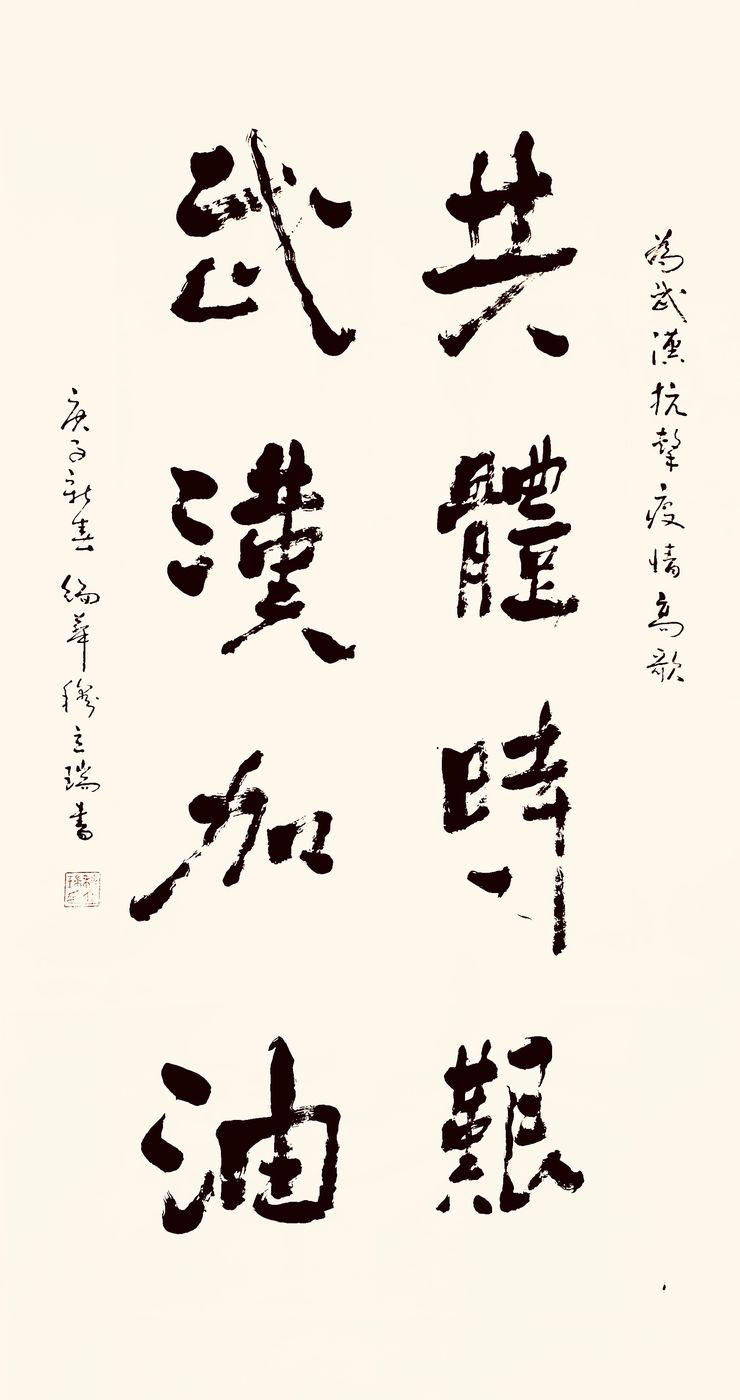 為武漢抗擊疫情高歌
共體時艱
武漢加油
庚子新春 穆立瑞書